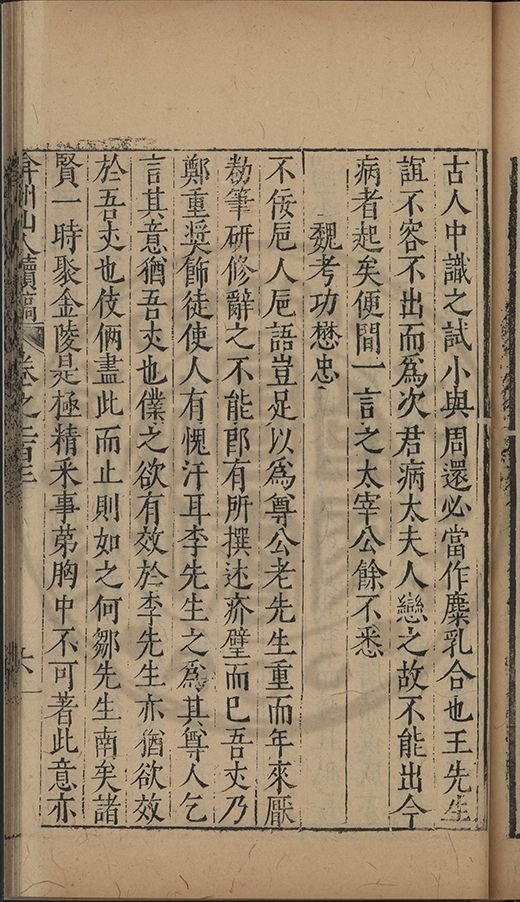 古人中識之試小與周還必當作麋乳合也王先生
誼不容不出而爲次君病太夫人戀之故不能出今
病者起矣便間一言之太宰公餘不悉
魏考功懋忠
不佞卮人卮語豈足以爲尊公老先生重而年來厭
勌筆研修辭之不能郎有所撰述疥壁而已吾丈乃
鄭重奬飾徒使人有愧汗耳李先生之爲其尊人乞
言其意猶吾丈也僕之欲有效於李先生亦猶欲效
於吾丈也伎倆盡此而止則如之何鄒先生南矣諸
賢一時聚金陵是極精釆事苐胸中不可著此意亦
弇州山人續稿 卷之 六